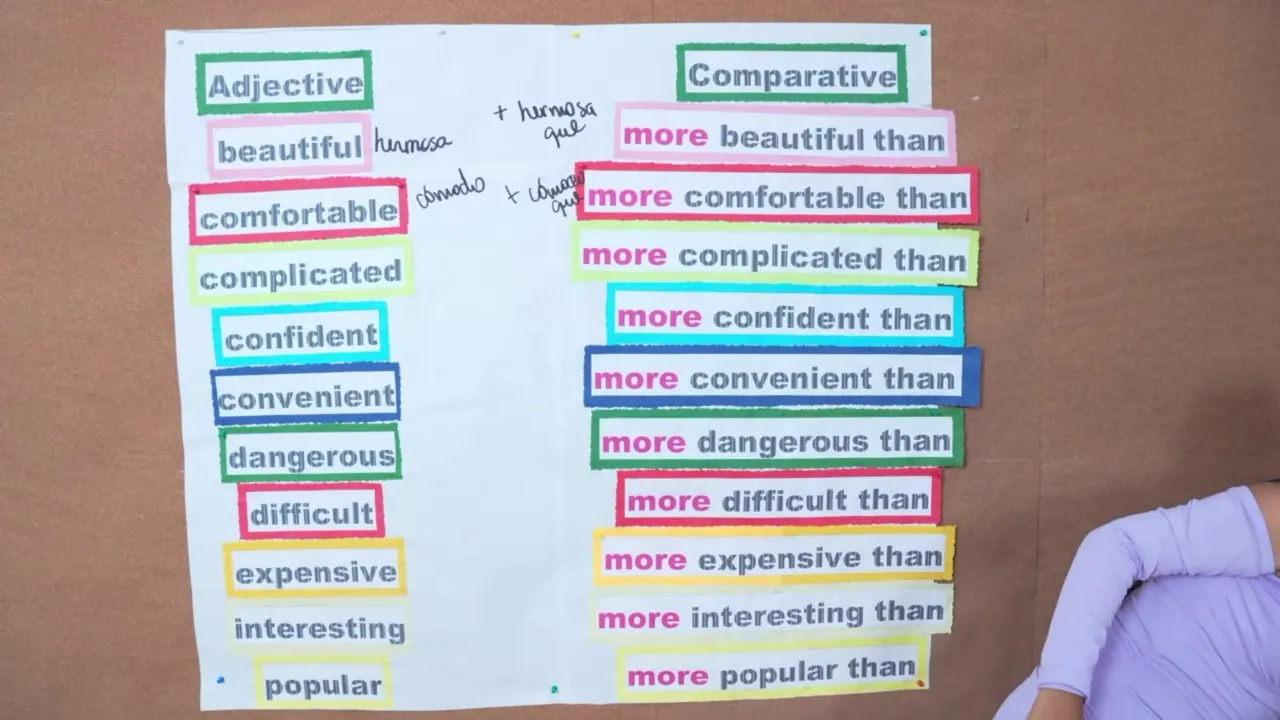 Adjective
Comparative
beautiful
hermosa
+ hermosa
que
more beautiful than
comfortable
cómodo
+ cómodo
que
more comfortable than
complicated
more complicated than
confident
more confident than
convenient
more convenient than
dangerous
more dangerous than
difficult
more difficult than
expensive
more expensive than
interesting
more interesting than
popular
more popular than